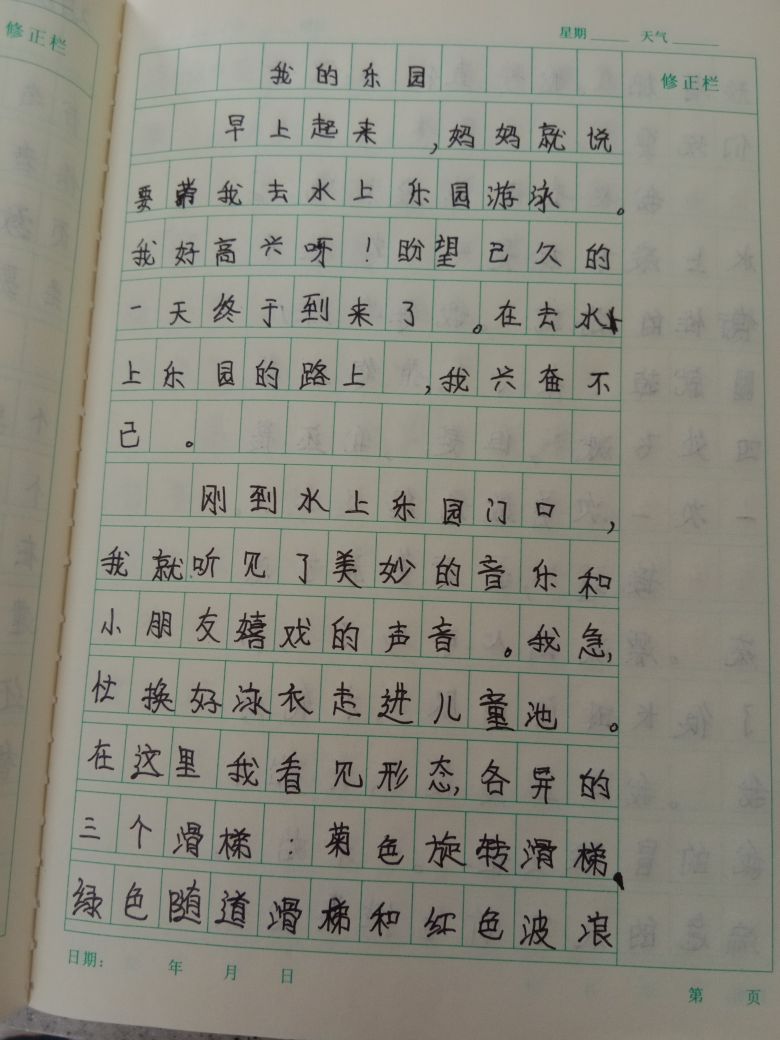 修正栏
星期 天气
我的乐园 修正栏
早上起来,妈妈就说
要带我去水上乐园游泳。
我好高兴呀!盼望已久的
一天终于到来了。在去水
上乐园的路上,我兴奋不
已。
刚到水上乐园门口,
我就听见了美妙的音乐和
小朋友嬉戏的声音。我急
忙换好泳衣走进儿童池。
在这里我看见形态各异的
三个滑梯:菊色旋转滑梯、
绿色随道滑梯和红色波浪
日期: 年 月 日
第 页